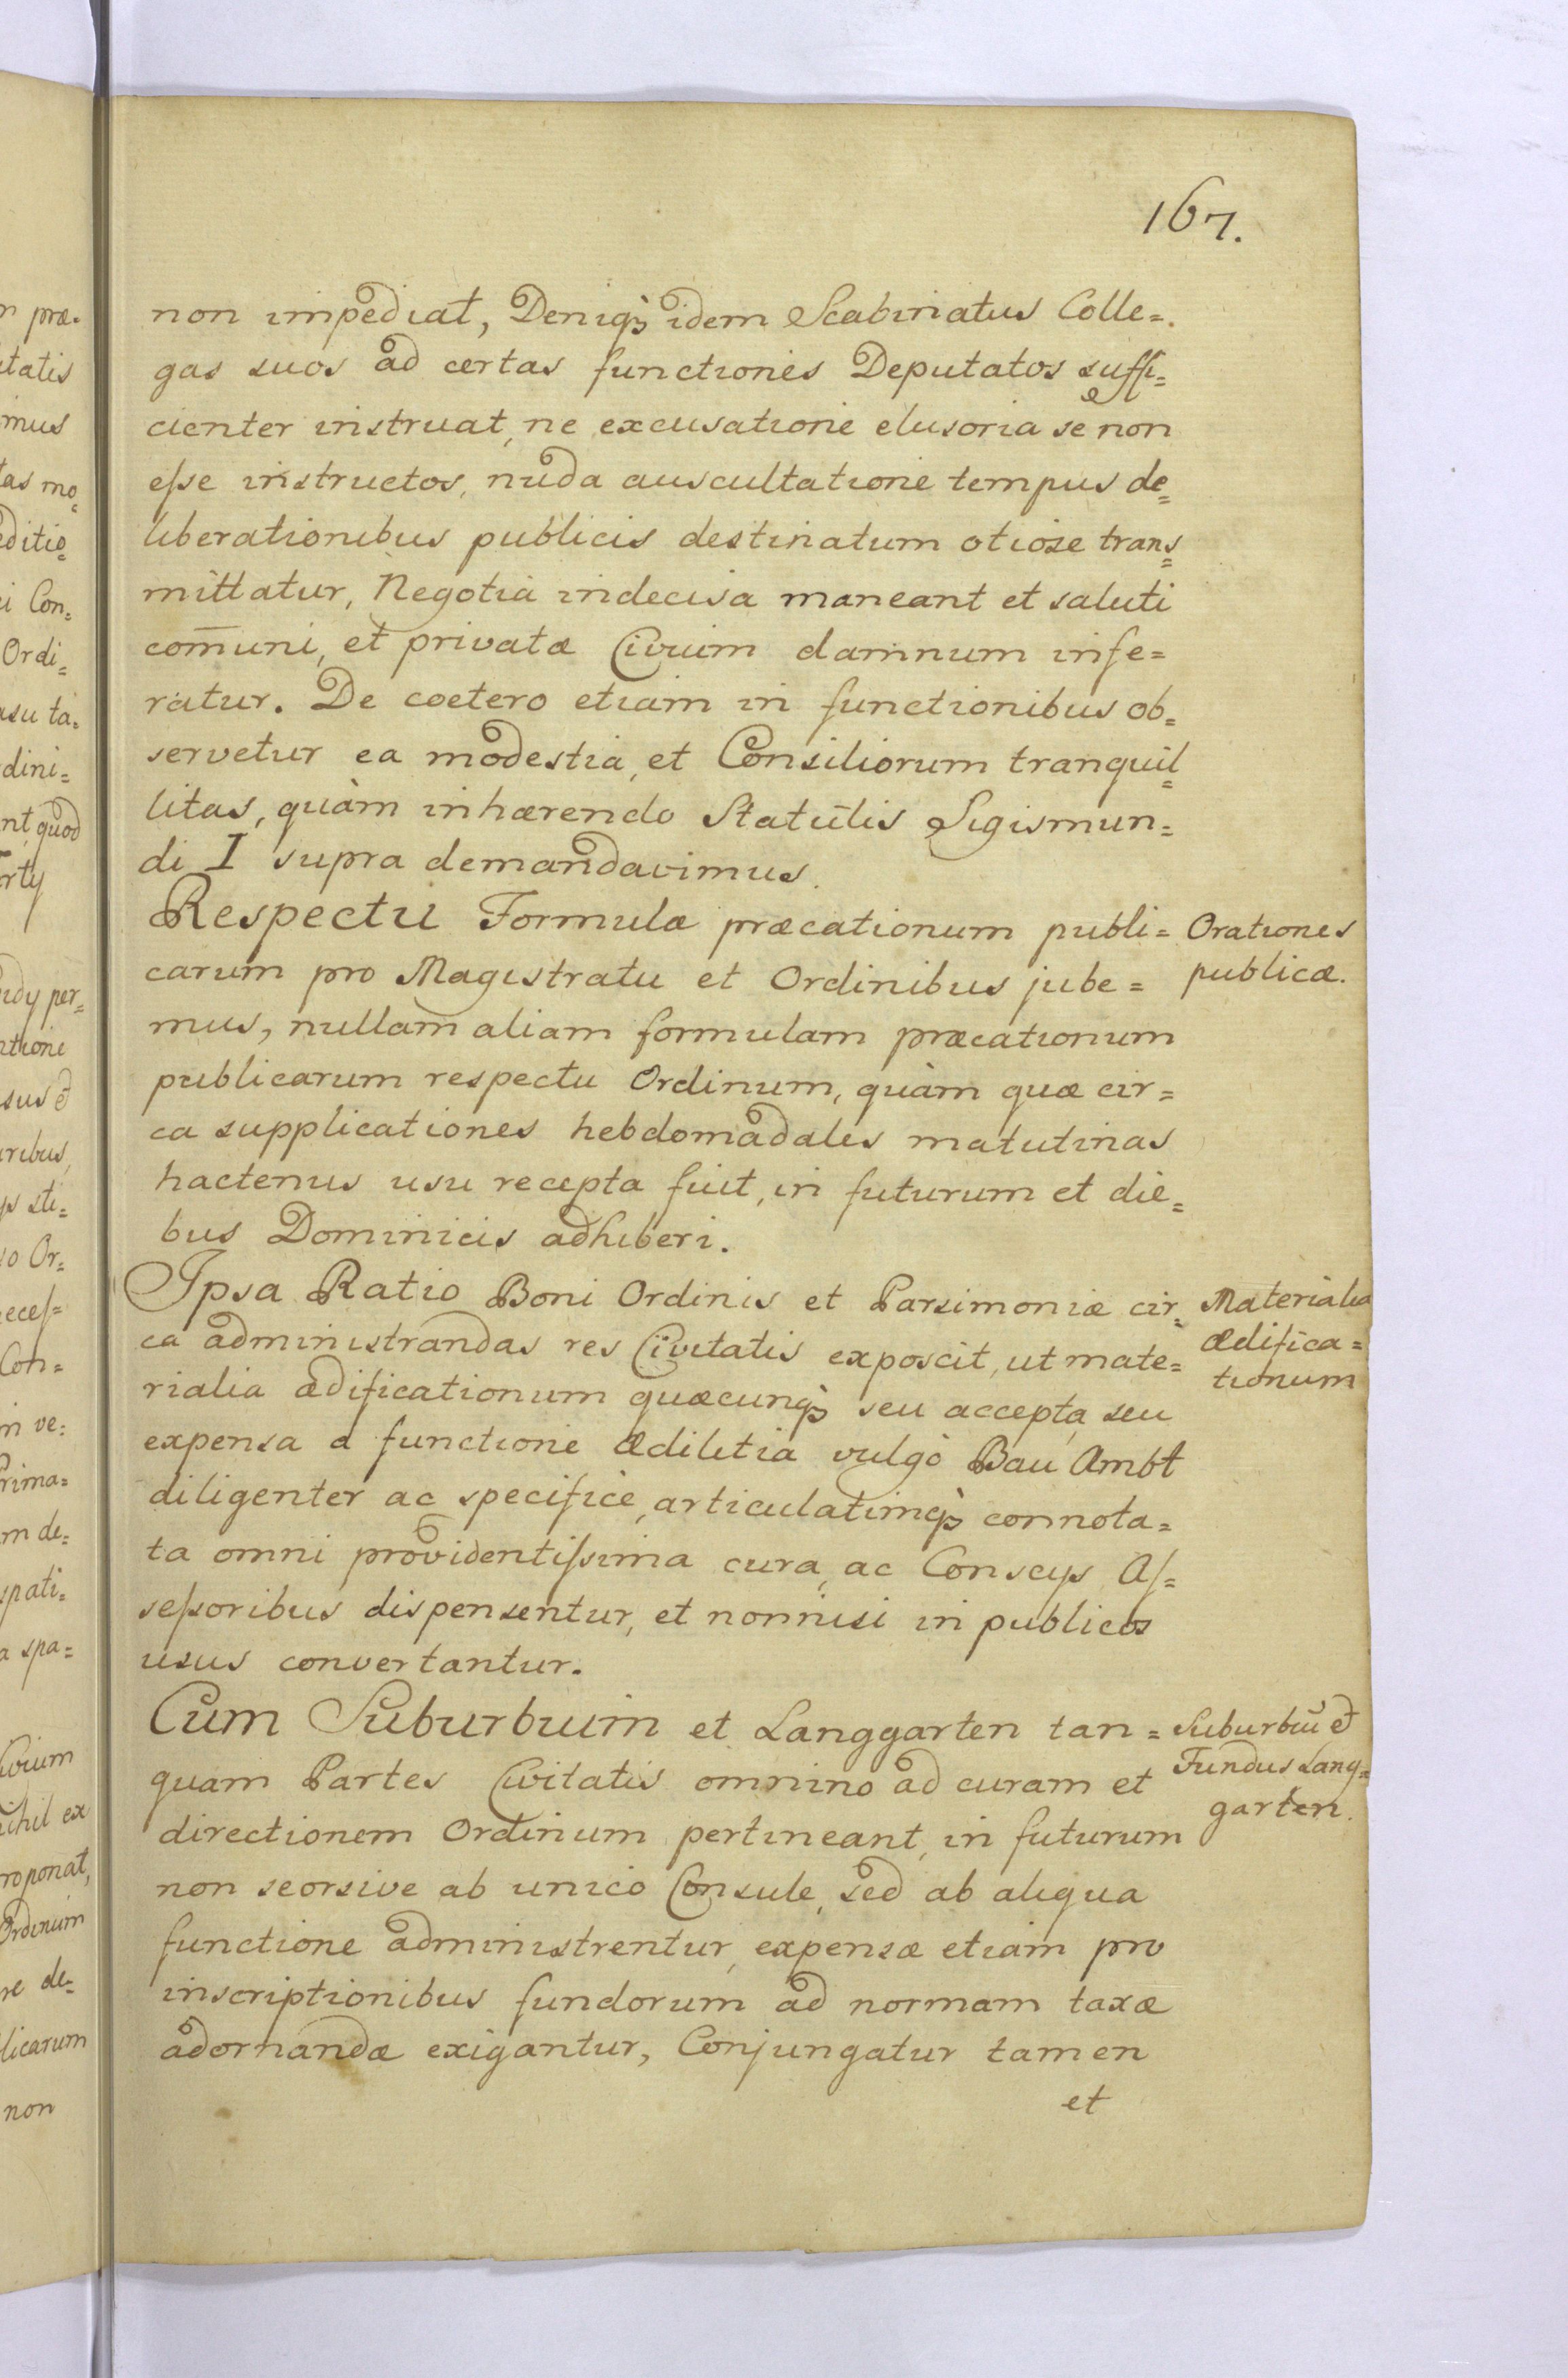 167.
non impediat, Deniqꝫ idem Scabinatus Colle=
gas suos ad certas functiones Deputatos suffi=
cienter instruat, ne excusatione elusoria se non
eſse instructos, nuda auscultatione tempus de=
liberationibus publicis destinatum otiose trans=
mittatur, Negotia indecisa maneant et saluti
com̄uni, et privatæ Civium damnum infe=
ratur. De coetero etiam in functionibus ob=
servetur ea modestia, et Consiliorum tranquil=
litas, quàm inhærendo Statutis Sigismun=
di I supra demandavimus.
Respectu Formulæ præcationum publi=
carum pro Magistratu et Ordinibus jube=
mus, nullam aliam formulam præcationum
publicarum respectu Ordinum, quàm quæ cir=
ca supplicationes hebdomadales matutinas
hactenus usu recepta fuit, in futurum et die=
bus Dominicis adhiberi.
Orationes
publicæ.
Ipsa Ratio Boni Ordinis et Parsimoniæ cir=
ca administrandas res Civitatis exposcit, ut mate=
rialia ædificationum quæcunqꝫ seu accepta, seu
expensa a functione Ædilitia vulgò Bau Ambt
diligenter ac specifice, articulatimqꝫ connota=
ta omni providentiſsima cura, ac Conscijs Aſ=
seſsoribus dispensentur, et nonnisi in publicos
usus convertantur.
Materialia
ædifica=
tionum
Cum Suburbium et Langgarten tan=
quam Partes Civitatis omnino ad curam et
directionem Ordinum pertineant, in futurum
non seorsive ab unico Consule, sed ab aliqua
functione administrentur, expensæ etiam pro
inscriptionibus fundorum ad normam taxæ
adornandæ exigantur, Conjungatur tamen
et
Suburbiū et
Fundus Lang=
garten.
n præ=
itatis
imus
tas mo=
editio=
i Con=
Ordi=
asu ta=
rdini=
nt, quod
udy per=
ntione
sus et
uribus,
o Or=
eceſ=
Con=
m ve=
Prima=
m de=
spati=
a spa=
ivium
ichil ex
roponat,
Ordinum
re de=
licarum
non